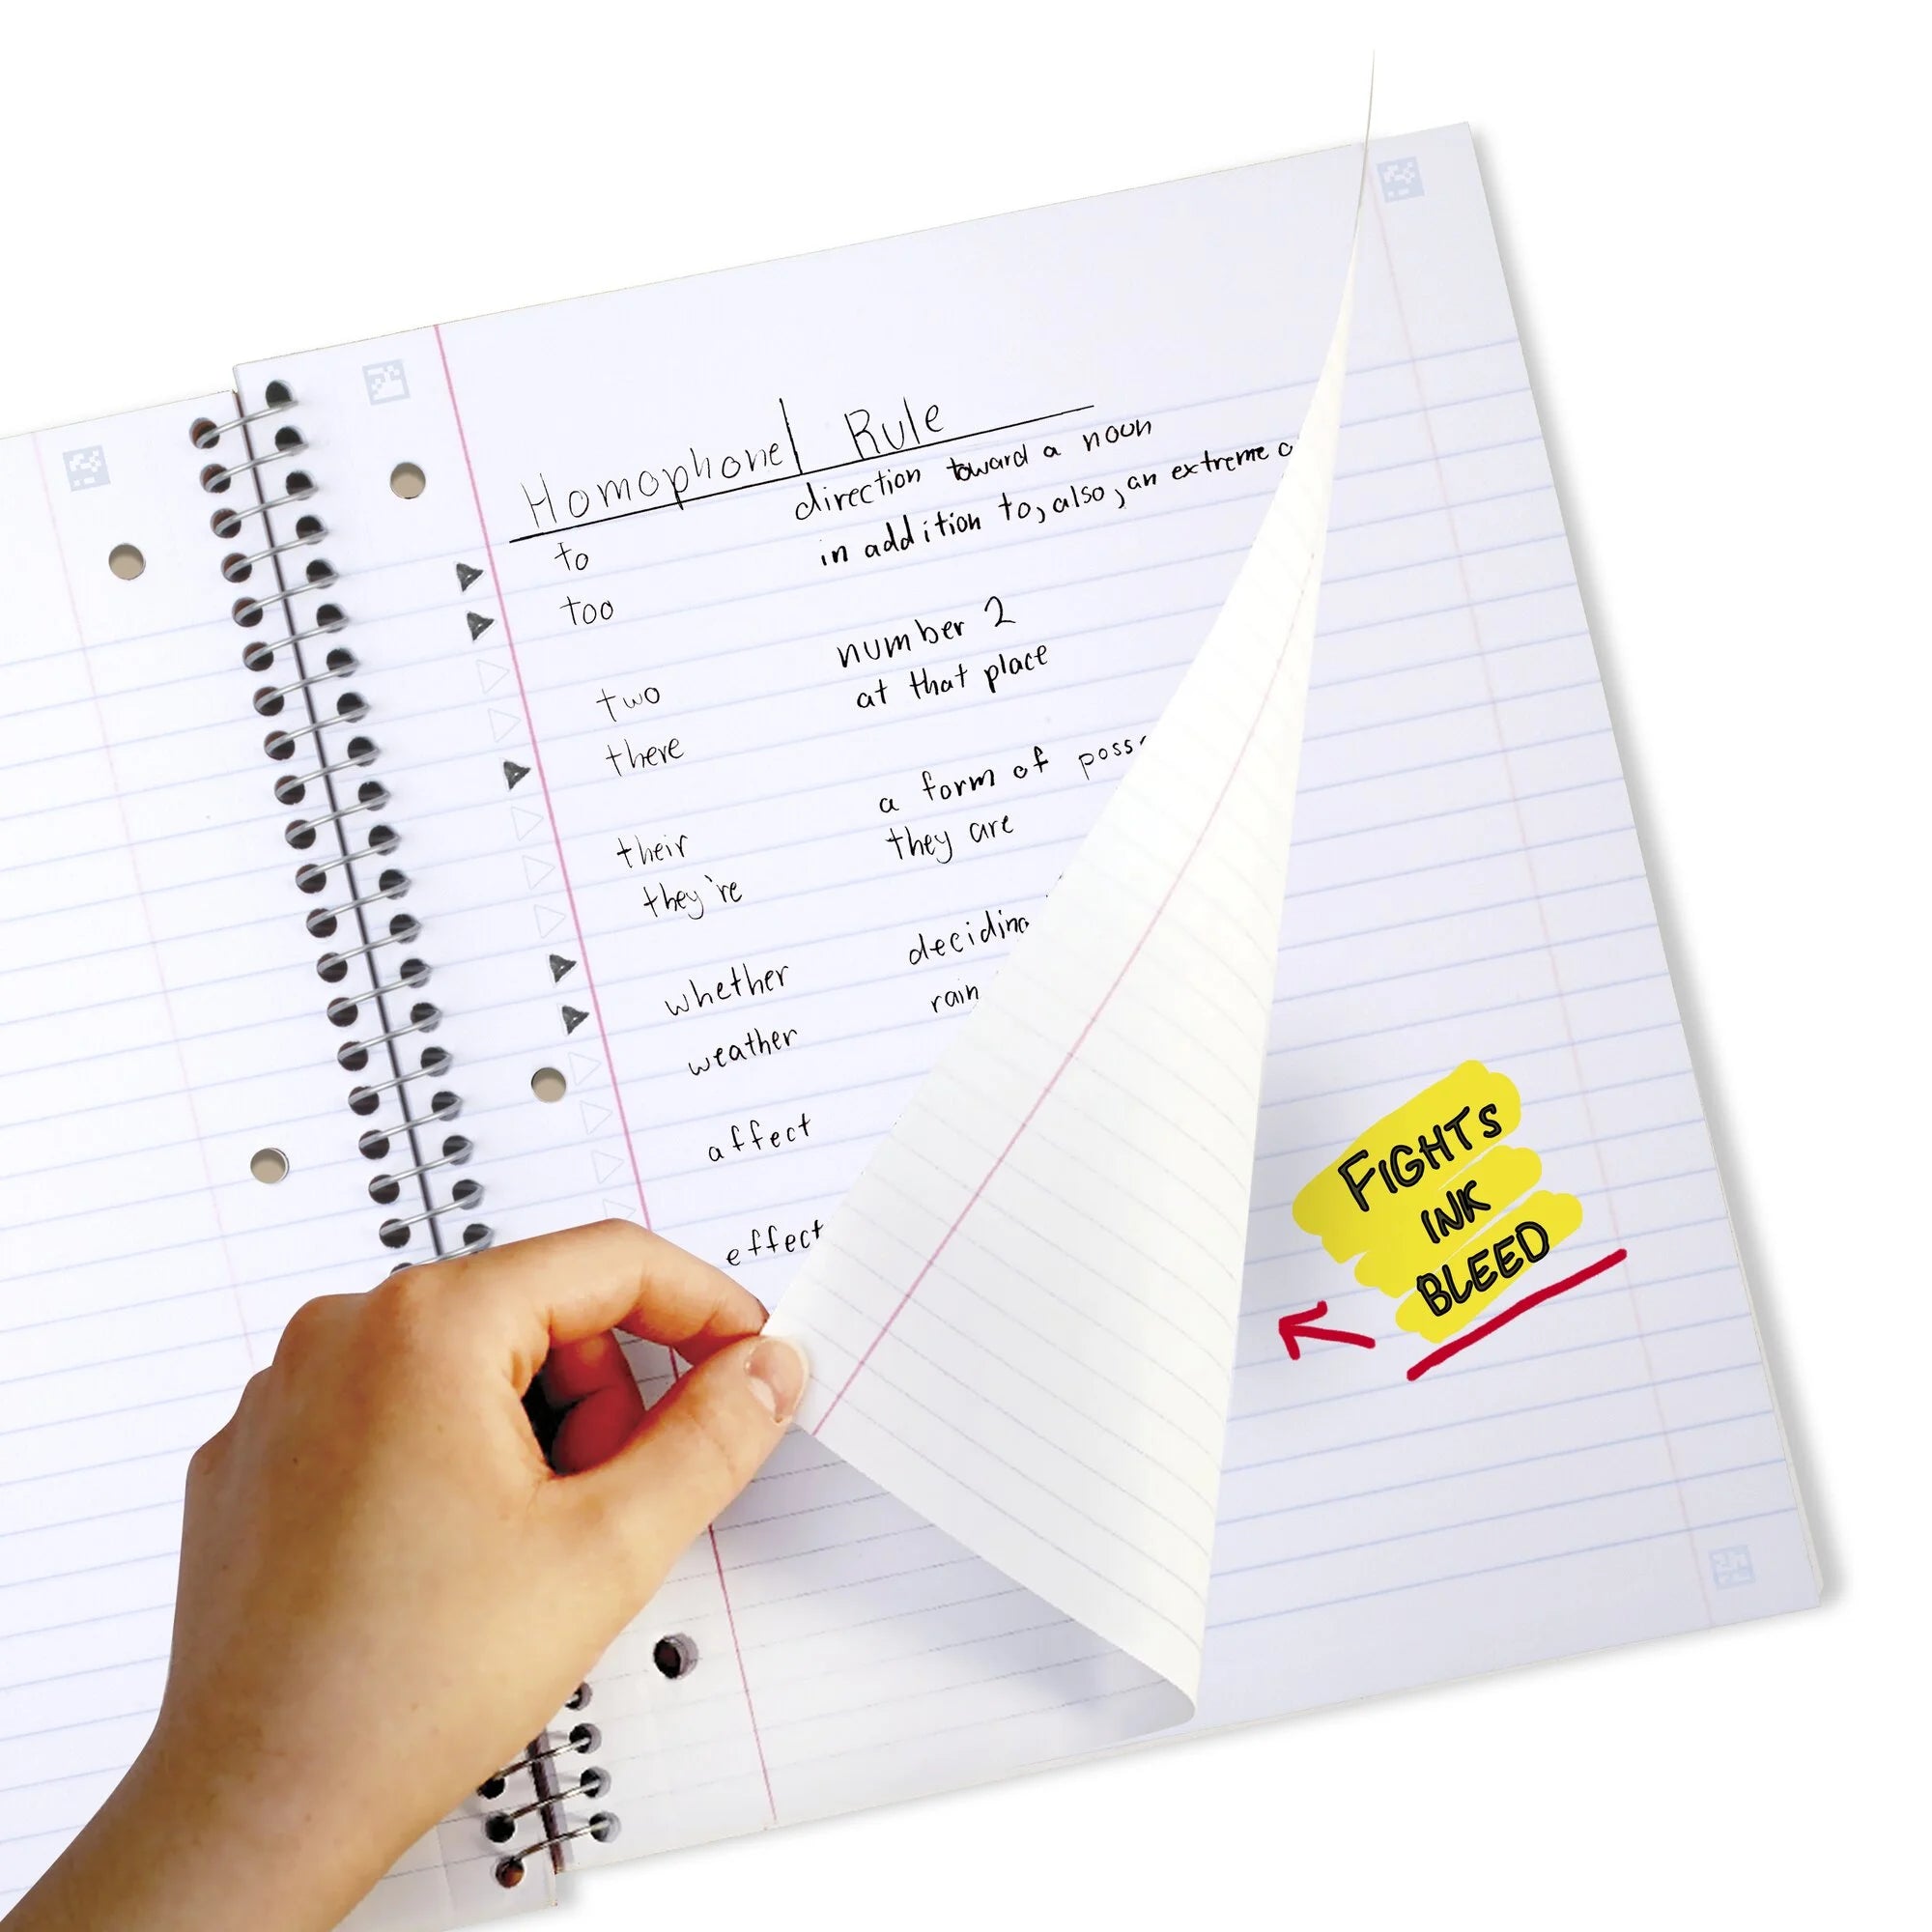 Homophone Rule
to direction toward a noun
too in addition to, also, an extreme
two number 2
there at that place
their a form of poss
they're they are
whether deciding
weather rain
affect
effect
FIGHTS
INK
BLEED